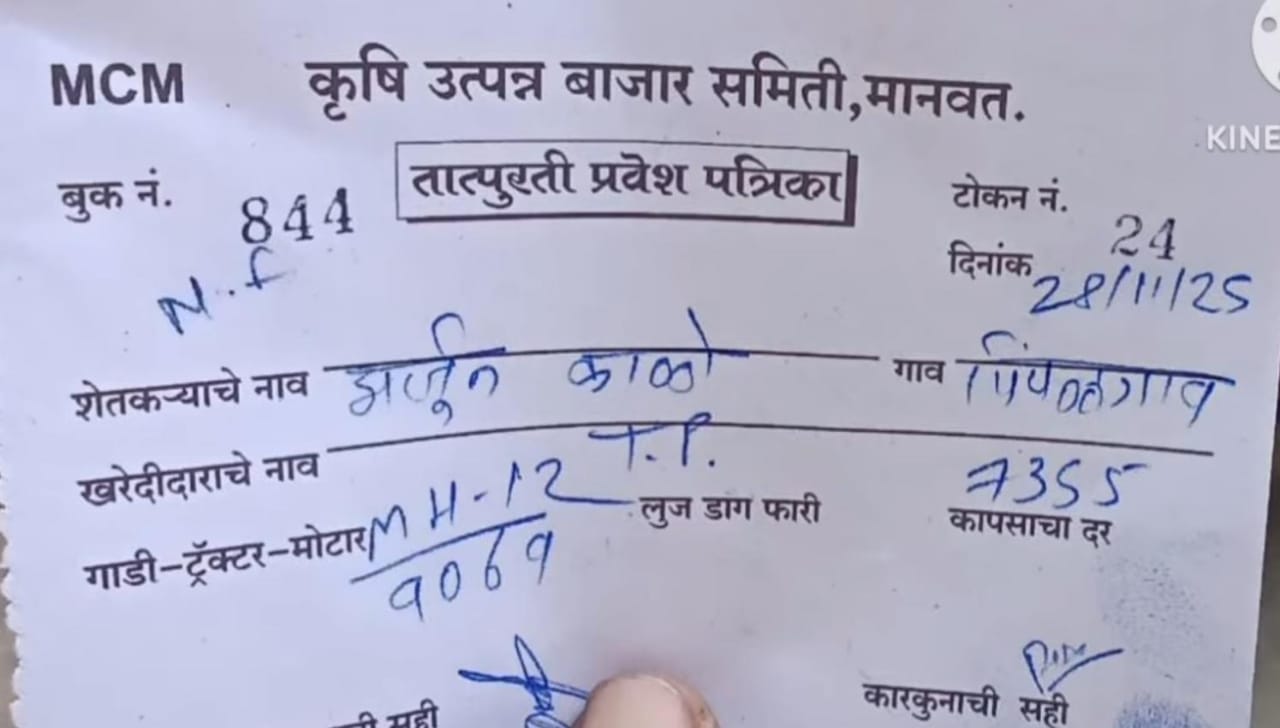 MCM कृषि उत्पन्न बाजार समिती,मानवत.
KINE
बुक नं. 844 तात्पुरती प्रवेश पत्रिका टोकन नं. 24
N.f दिनांक 28/11/25
शेतकऱ्याचे नाव अर्जून काळे गाव पिंपळगाव
खरेदीदाराचे नाव T.P.
7355
गाडी-ट्रॅक्टर-मोटार MH-12 लुज डाग फारी कापसाचा दर
9069
सही कारकुनाची सही